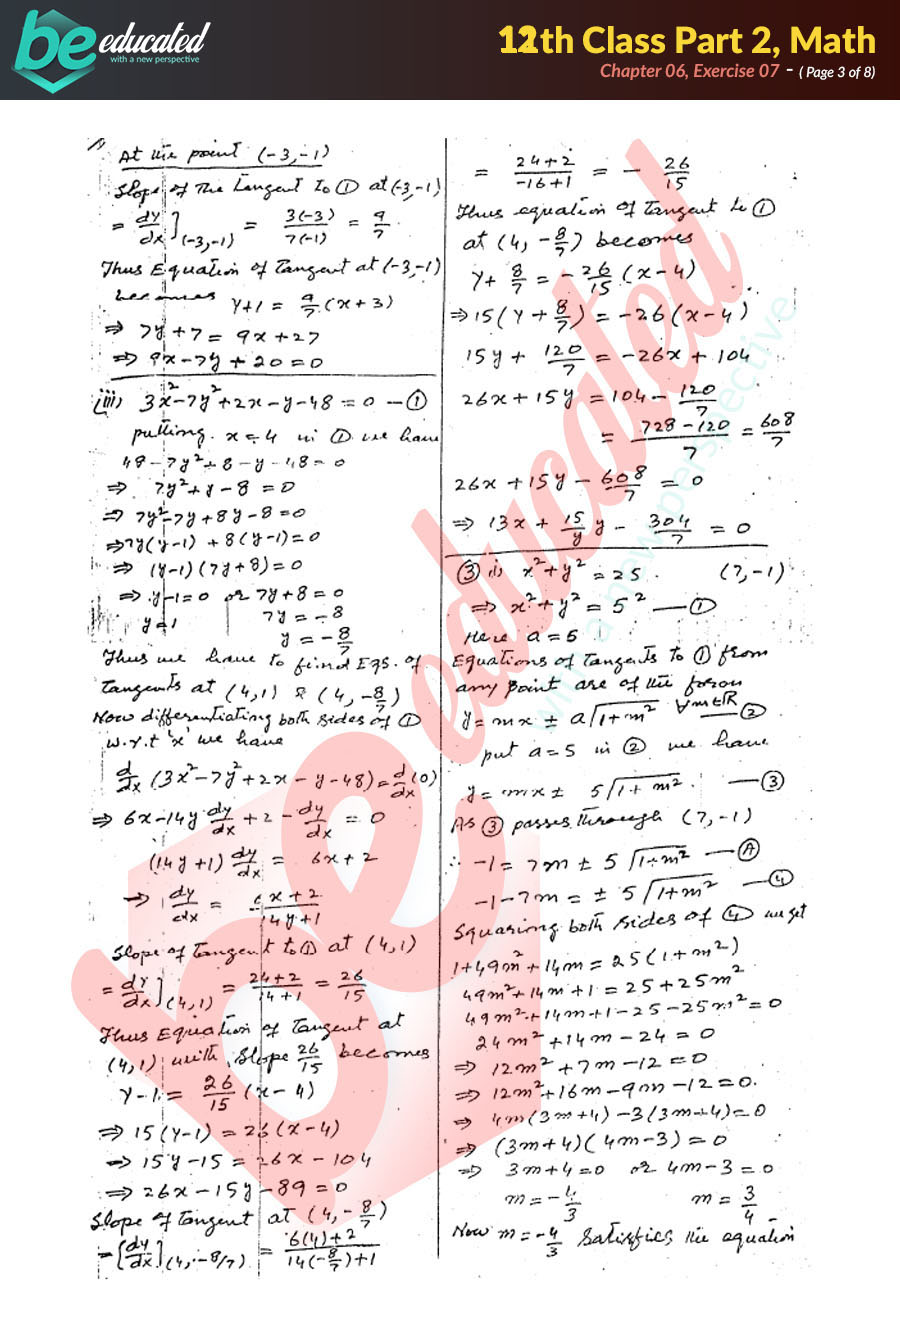 be educated
with a new perspective
12th Class Part 2, Math
Chapter 06, Exercise 07 - ( Page 3 of 8)
At the point (-3,-1)
Slope of The Tangent to ① at (-3,-1)
= dy/dx](-3,-1) = 3(-3)/7(-1) = 9/7
Thus Equation of Tangent at (-3,-1)
becomes y+1 = 9/7 (x+3)
⇒ 7y+7 = 9x+27
⇒ 9x-7y+20=0
(iii) 3x²-7y²+2x-y-48=0 —①
putting x=4 in ① we have
48-7y²+8-y-48=0
⇒ 7y²+y-8=0
⇒ 7y²-7y+8y-8=0
⇒7y(y-1)+8(y-1)=0
⇒ (y-1)(7y+8)=0
⇒ y-1=0 or 7y+8=0
y=1 7y=-8
y=-8/7
Thus we have to find Eqs. of
tangents at (4,1) & (4,-8/7)
Now differentiating both sides of ①
w.r.t 'x' we have
d/dx (3x²-7y²+2x-y-48)=d/dx(0)
⇒ 6x-14y dy/dx +2- dy/dx = 0
(14y+1) dy/dx = 6x+2
→ dy/dx = 6x+2/14y+1
Slope of Tangent to ① at (4,1)
= dy/dx](4,1) = 24+2/14+1 = 26/15
Thus Equation of Tangent at
(4,1) with slope 26/15 becomes
y-1 = 26/15 (x-4)
⇒ 15(y-1) = 26(x-4)
⇒ 15y-15 = 26x-104
⇒ 26x-15y-89=0
Slope of Tangent at (4,-8/7)
= [dy/dx](4,-8/7) = 6(4)+2/14(-8/7)+1
= 24+2/-16+1 = - 26/15
Thus equation of Tangent to ①
at (4,-8/7) becomes
y+ 8/7 = -26/15 (x-4)
⇒15(y+8/7) = -26(x-4)
15y+ 120/7 = -26x+104
26x+15y = 104-120/7
= 728-120/7 = 608/7
26x+15y- 608/7 = 0
⇒ 13x+ 15/y y- 304/7 = 0
③ (i) x²+y²=25. (7,-1)
⇒ x²+y²=5² —①
Here a=5
Equations of Tangents to ① from
any point are of the form
y=mx ± a√1+m² ∀m∈R —②
put a=5 in ② we have
y=mx ± 5√1+m². —③
As ③ passes through (7,-1)
∴ -1=7m ± 5√1+m² —Ⓐ
-1-7m = ± 5√1+m² —④
Squaring both sides of ④ we get
1+49m²+14m = 25(1+m²)
49m²+14m+1 = 25+25m²
49m²+14m+1-25-25m²=0
24m²+14m-24=0
⇒ 12m²+7m-12=0
⇒ 12m²+16m-9m-12=0.
⇒ 4m(3m+4)-3(3m+4)=0
⇒ (3m+4)(4m-3)=0
⇒ 3m+4=0 or 4m-3=0
m=-4/3 m=3/4
Now m=-4/3 satisfies the equation
be educated
with a new perspective